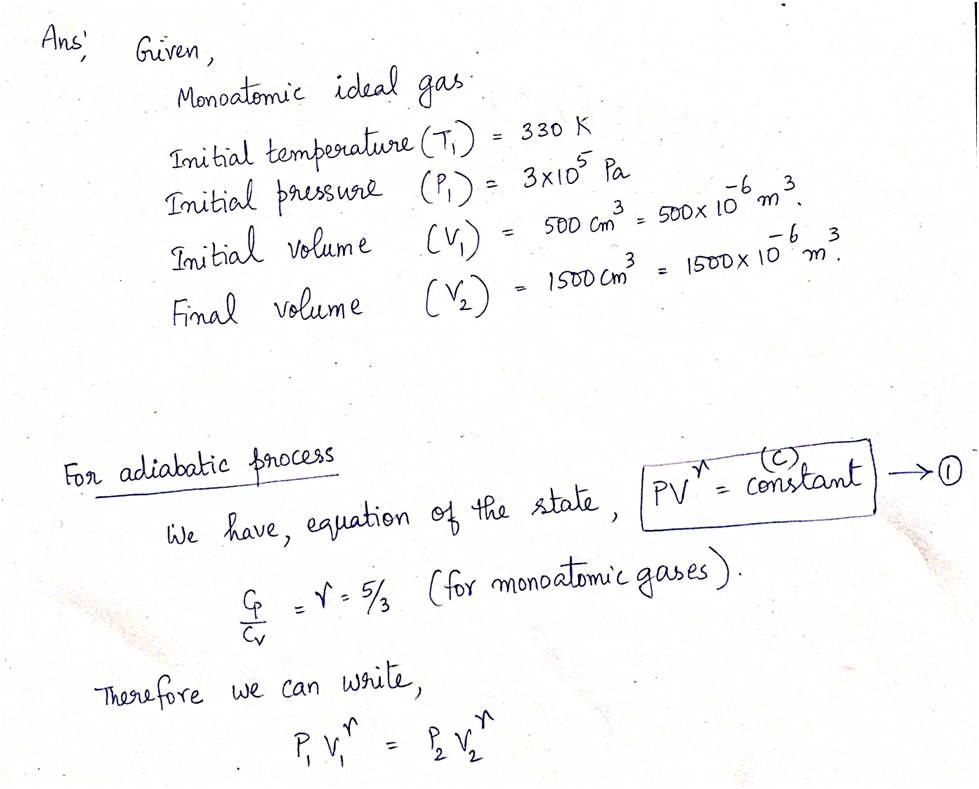 Ans; Given,
Monoatomic ideal gas.
Initial temperature (T₁) = 330 K
Initial pressure (P₁) = 3×10⁵ Pa
Initial volume (V₁) = 500 cm³ = 500×10⁻⁶ m³.
Final volume (V₂) = 1500 cm³ = 1500×10⁻⁶ m³.
For adiabatic process
We have, equation of the state, PV^γ = constant (C) → ①
Cp/Cv = γ = 5/3 (for monoatomic gases).
Therefore we can write,
P₁V₁^γ = P₂V₂^γ